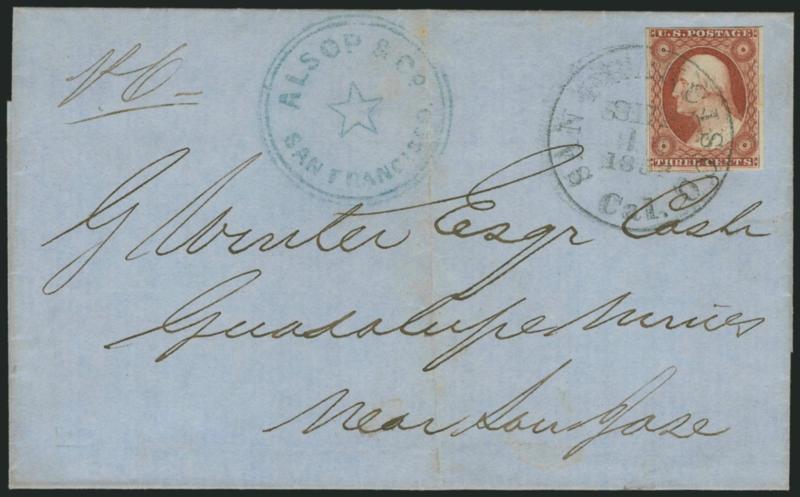 ALSOP & CO.
SAN FRANCISCO.
U.S. POSTAGE
THREE CENTS
SAN FRANCISCO
Cal.
G Winter Esqr Cash
Guadalupe Mines
Near San Jose